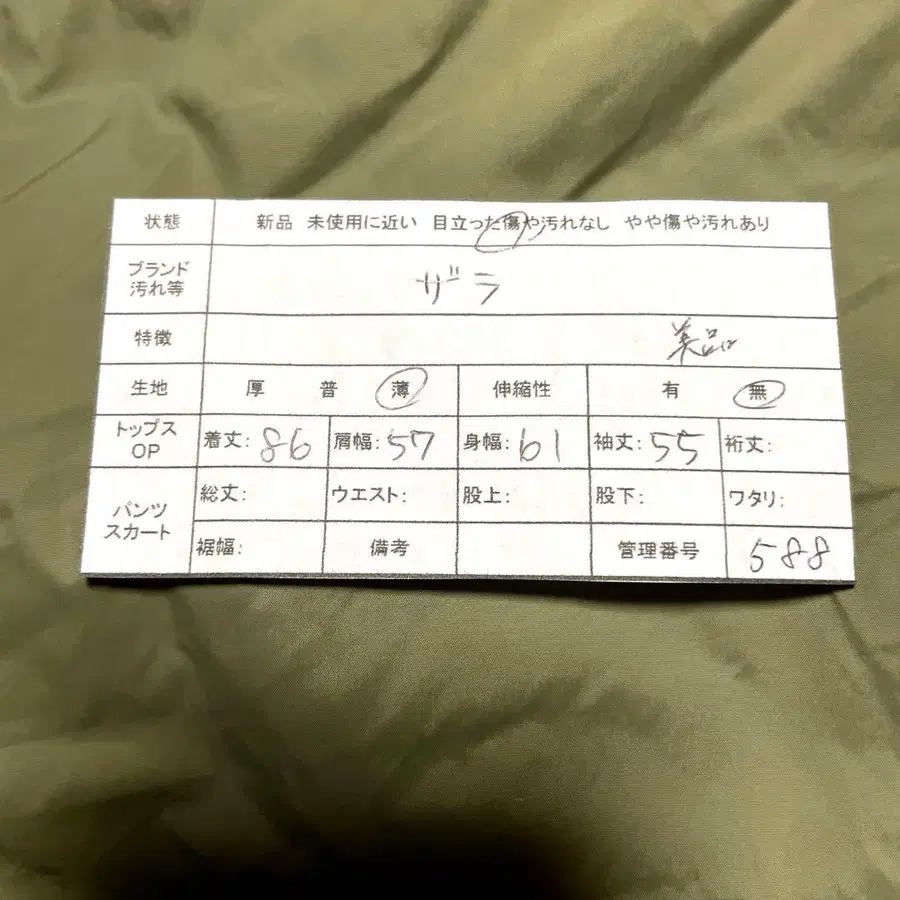 状態 新品 未使用に近い 目立った傷や汚れなし やや傷や汚れあり
ブランド
汚れ等
ザラ
特徴 美品
生地 厚 普 薄 伸縮性 有 無
トップス
OP
着丈: 86 肩幅: 57 身幅: 61 袖丈: 55 裄丈:
パンツ
スカート
総丈: ウエスト: 股上: 股下: ワタリ:
裾幅: 備考 管理番号 588